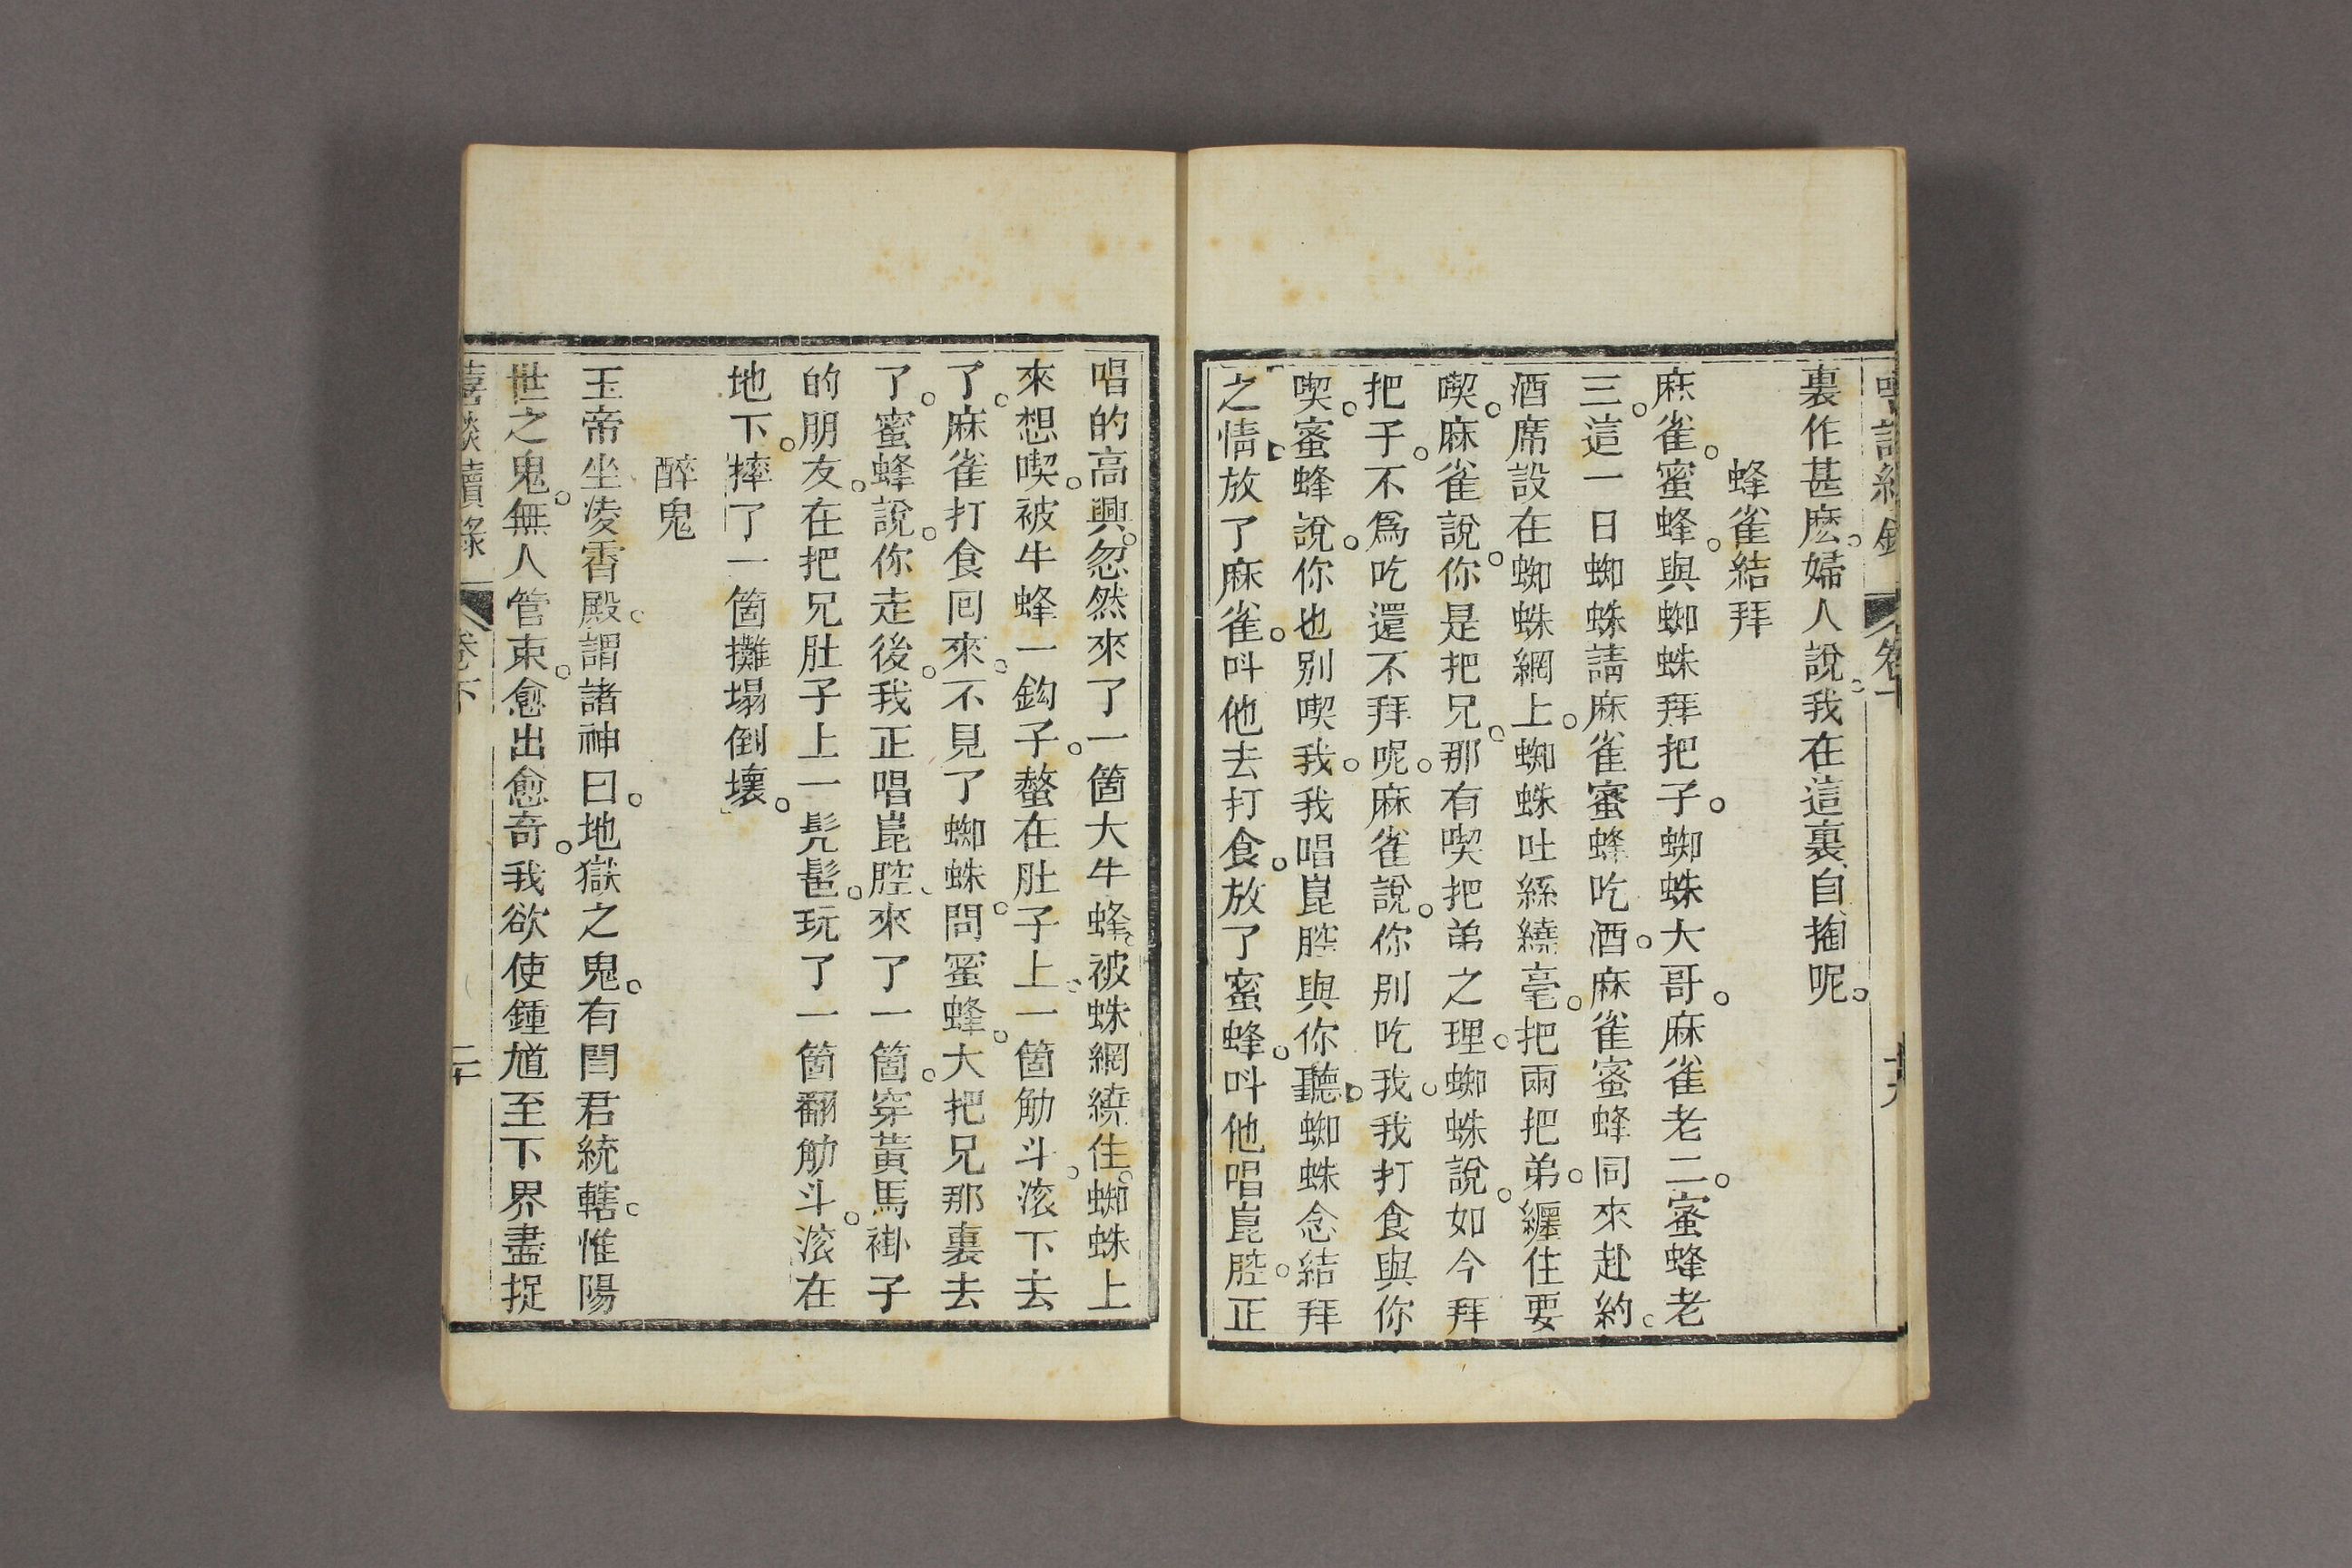 裏作甚麽。婦人說。我在這裏自掏呢。
蜂雀結拜
麻雀。蜜蜂。與蜘蛛拜把子。蜘蛛大哥。麻雀老二。蜜蜂老
三。這一日蜘蛛請麻雀蜜蜂吃酒。麻雀蜜蜂同來赴約。
酒席設在蜘蛛網上。蜘蛛吐絲繞毫。把兩把弟。纏住要
喫。麻雀說。你是把兄。那有喫把弟之理。蜘蛛說。如今拜
把子。不爲吃還不拜呢。麻雀說。你別吃我。我打食與你
喫。蜜蜂說。你也別喫我。我唱崑腔與你聽。蜘蛛念結拜
之情。放了麻雀。呌他去打食。放了蜜蜂。呌他唱崑腔。正
唱的高興。忽然來了一箇大牛蜂。被蛛網繞住。蜘蛛上
來想喫。被牛蜂一鈎子。螫在肚子上。一箇觔斗。滚下去
了。麻雀打食囘來。不見了蜘蛛。問蜜蜂。大把兄那裏去
了。蜜蜂說。你走後。我正唱崑腔。來了一箇。穿黃馬褂子
的朋友。在把兄肚子上一髠髱。玩了一箇翻觔斗。滚在
地下。摔了一箇攤塌倒壞。
醉鬼
玉帝坐凌霄殿。謂諸神曰。地獄之鬼。有閆君統轄。惟陽
世之鬼。無人管束。愈出愈奇。我欲使鍾馗至下界盡捉
喜談續錄 卷下 二十